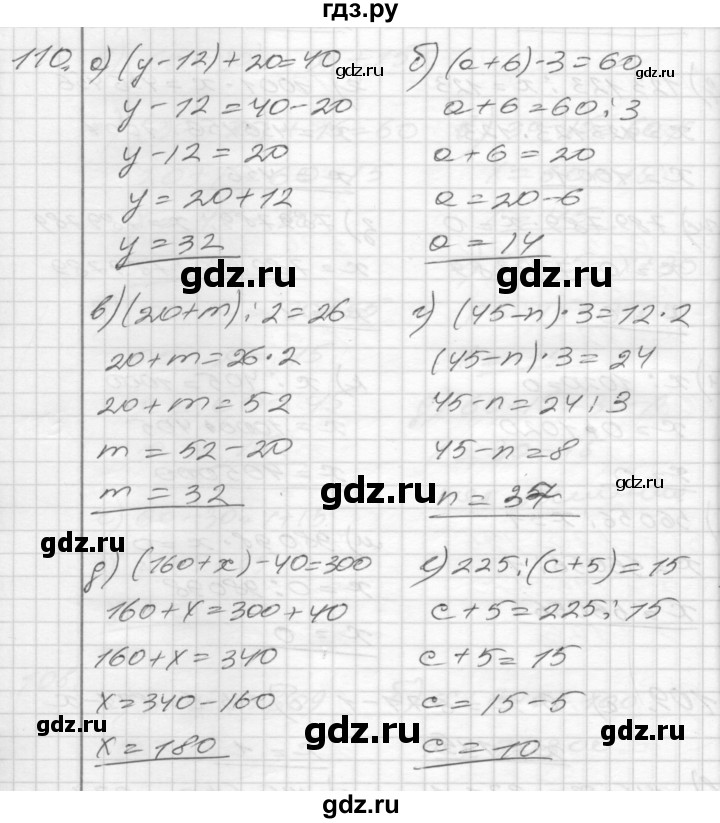 гдз.ру
110. а) (y-12)+20=40
y-12=40-20
y-12=20
y=20+12
y=32
б) (a+6)·3=60
a+6=60:3
a+6=20
a=20-6
a=14
gdz.ru
gdz.ru
gdz.ru
gdz.ru
в) (20+m):2=26
20+m=26·2
20+m=52
m=52-20
m=32
г) (45-n)·3=12·2
(45-n)·3=24
45-n=24:3
45-n=8
n=37
gdz.ru
gdz.ru
gdz.ru
gdz.ru
д) (160+x)-40=300
160+x=300+40
160+x=340
x=340-160
x=180
е) 225:(c+5)=15
c+5=225:15
c+5=15
c=15-5
c=10
gdz.ru
gdz.ru
gdz.ru
gdz.ru